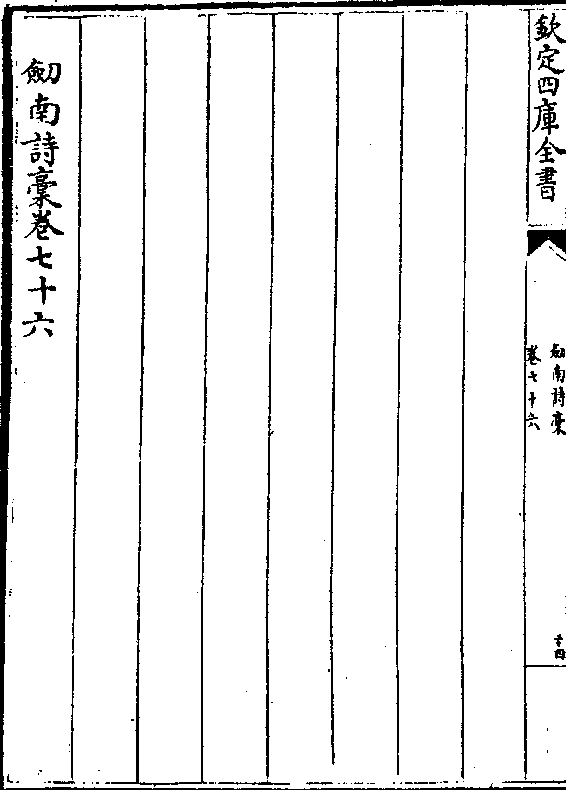 欽定四庫全書
劒南詩稾
卷七十六
二十四
劒南詩稾卷七十六